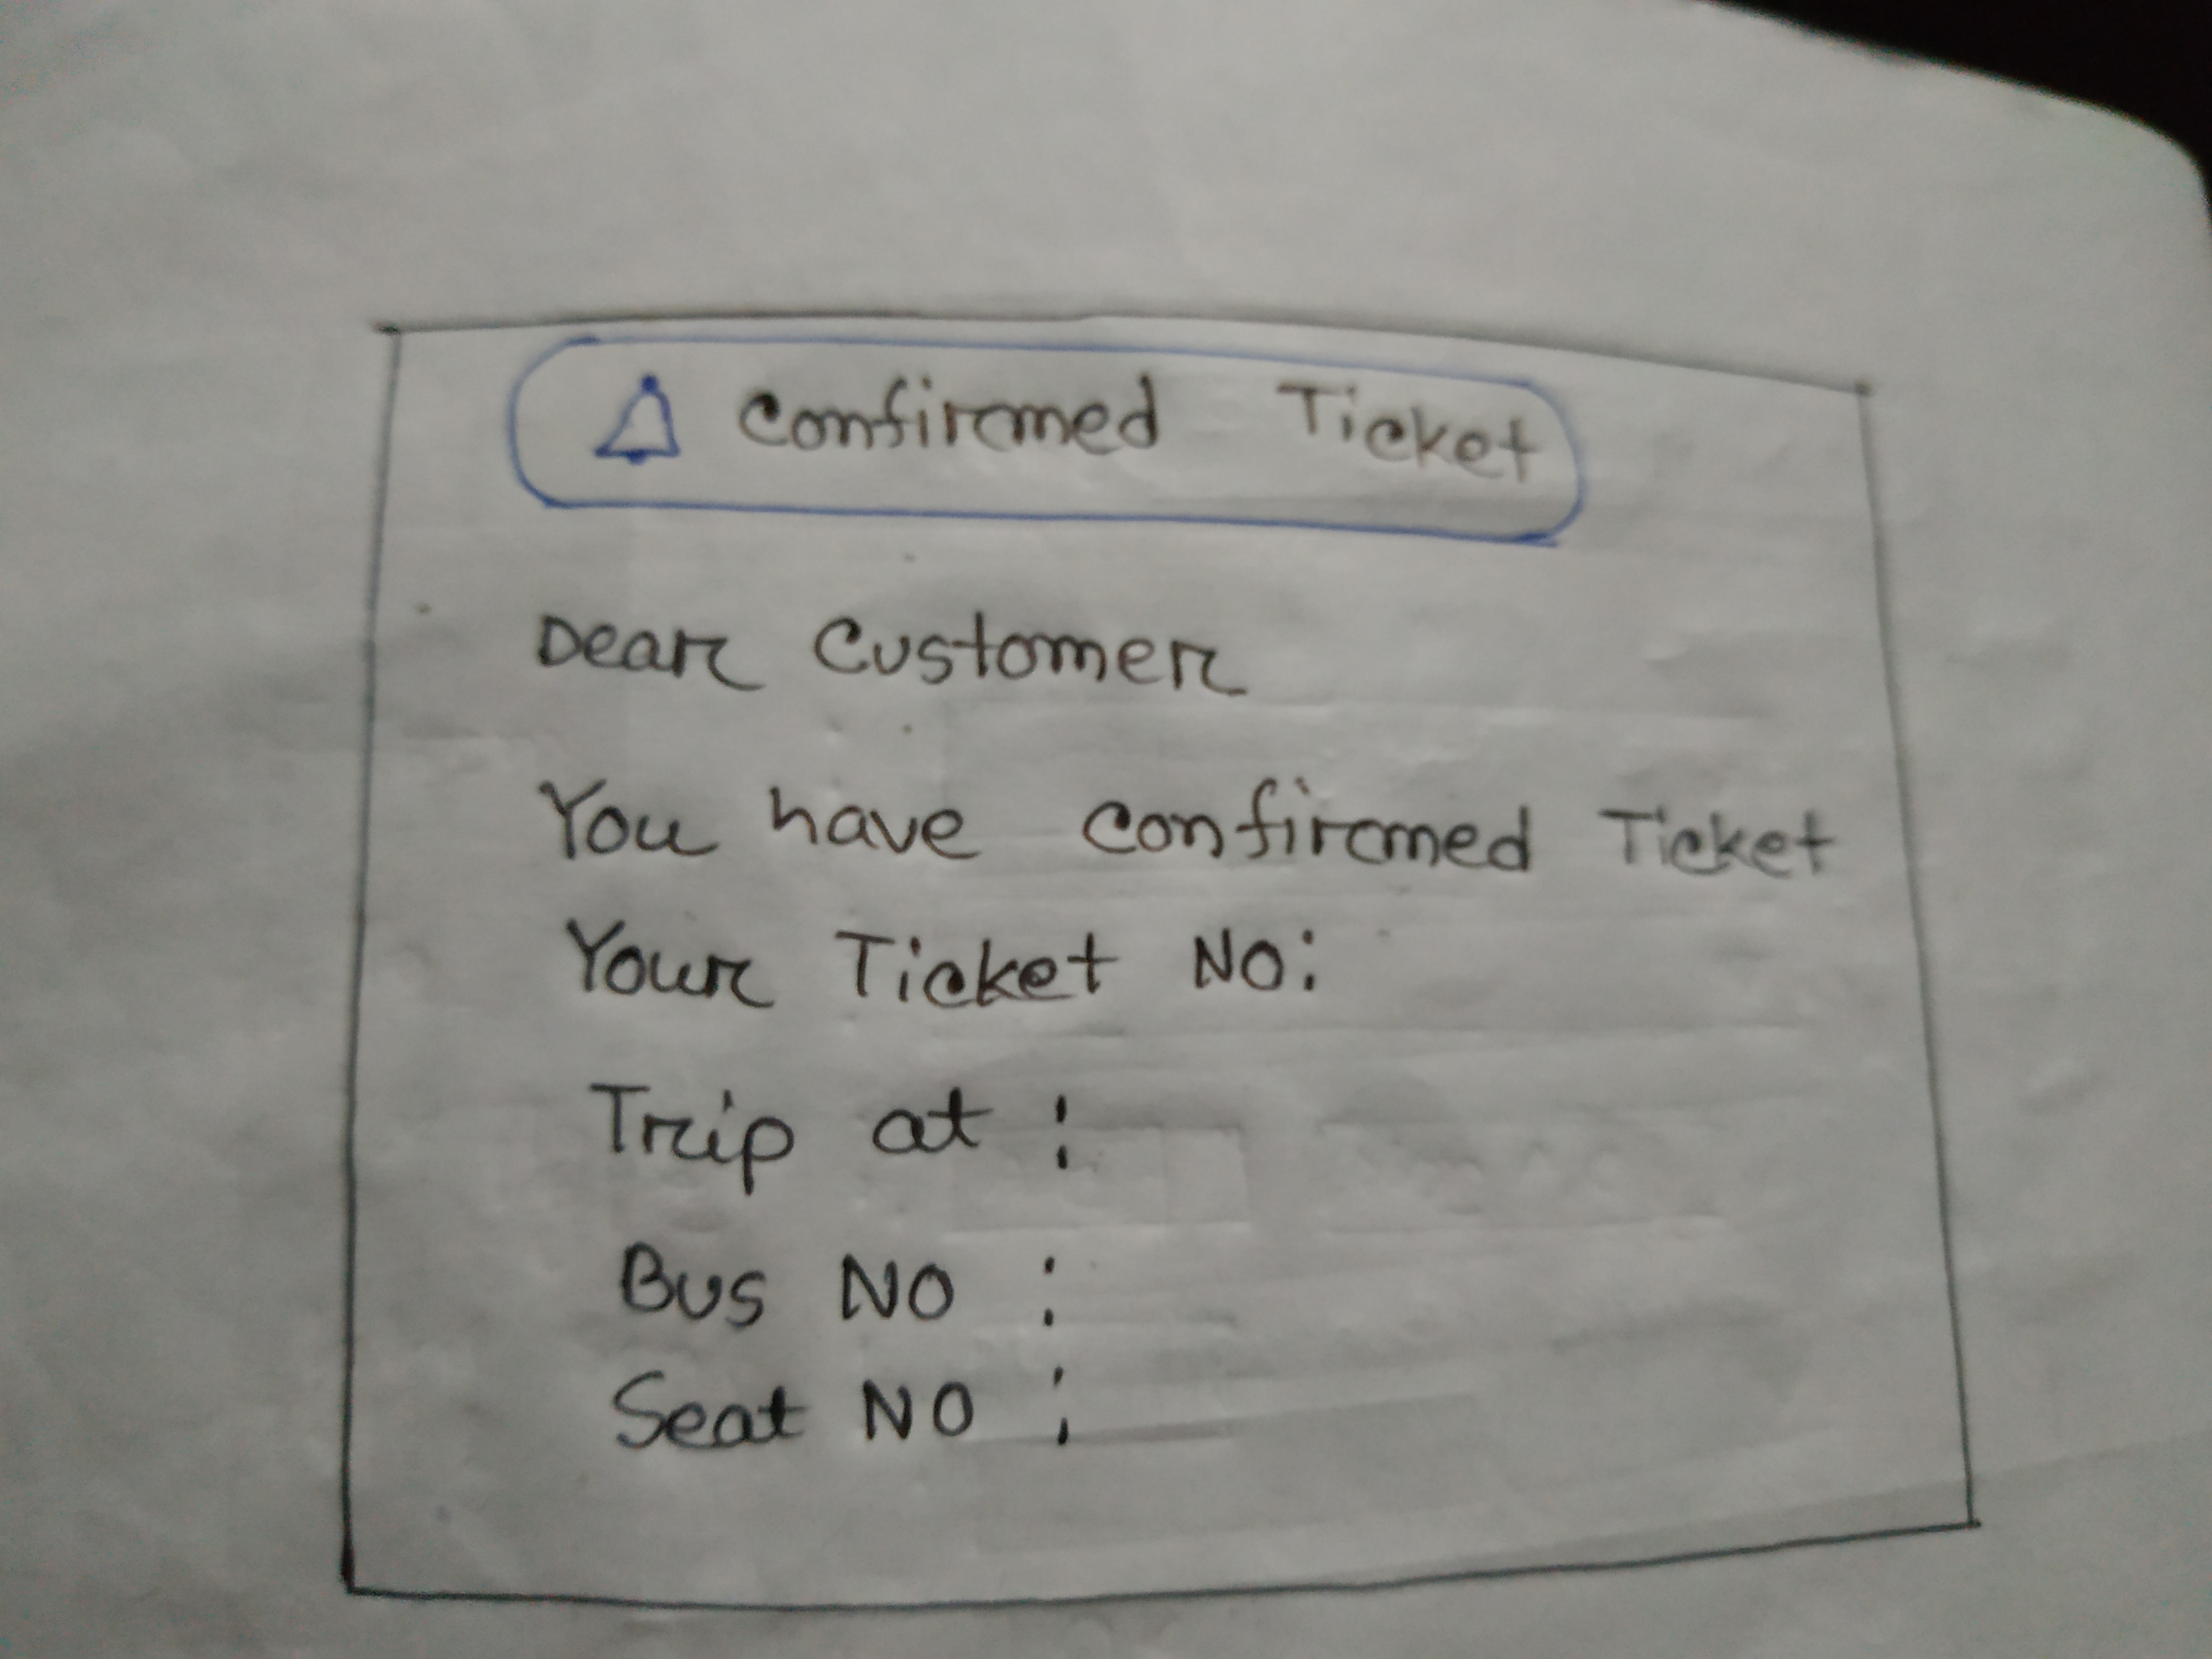 Confirmed Ticket
Dear Customer
You have confirmed Ticket
Your Ticket NO:
Trip at :
Bus NO :
Seat NO :